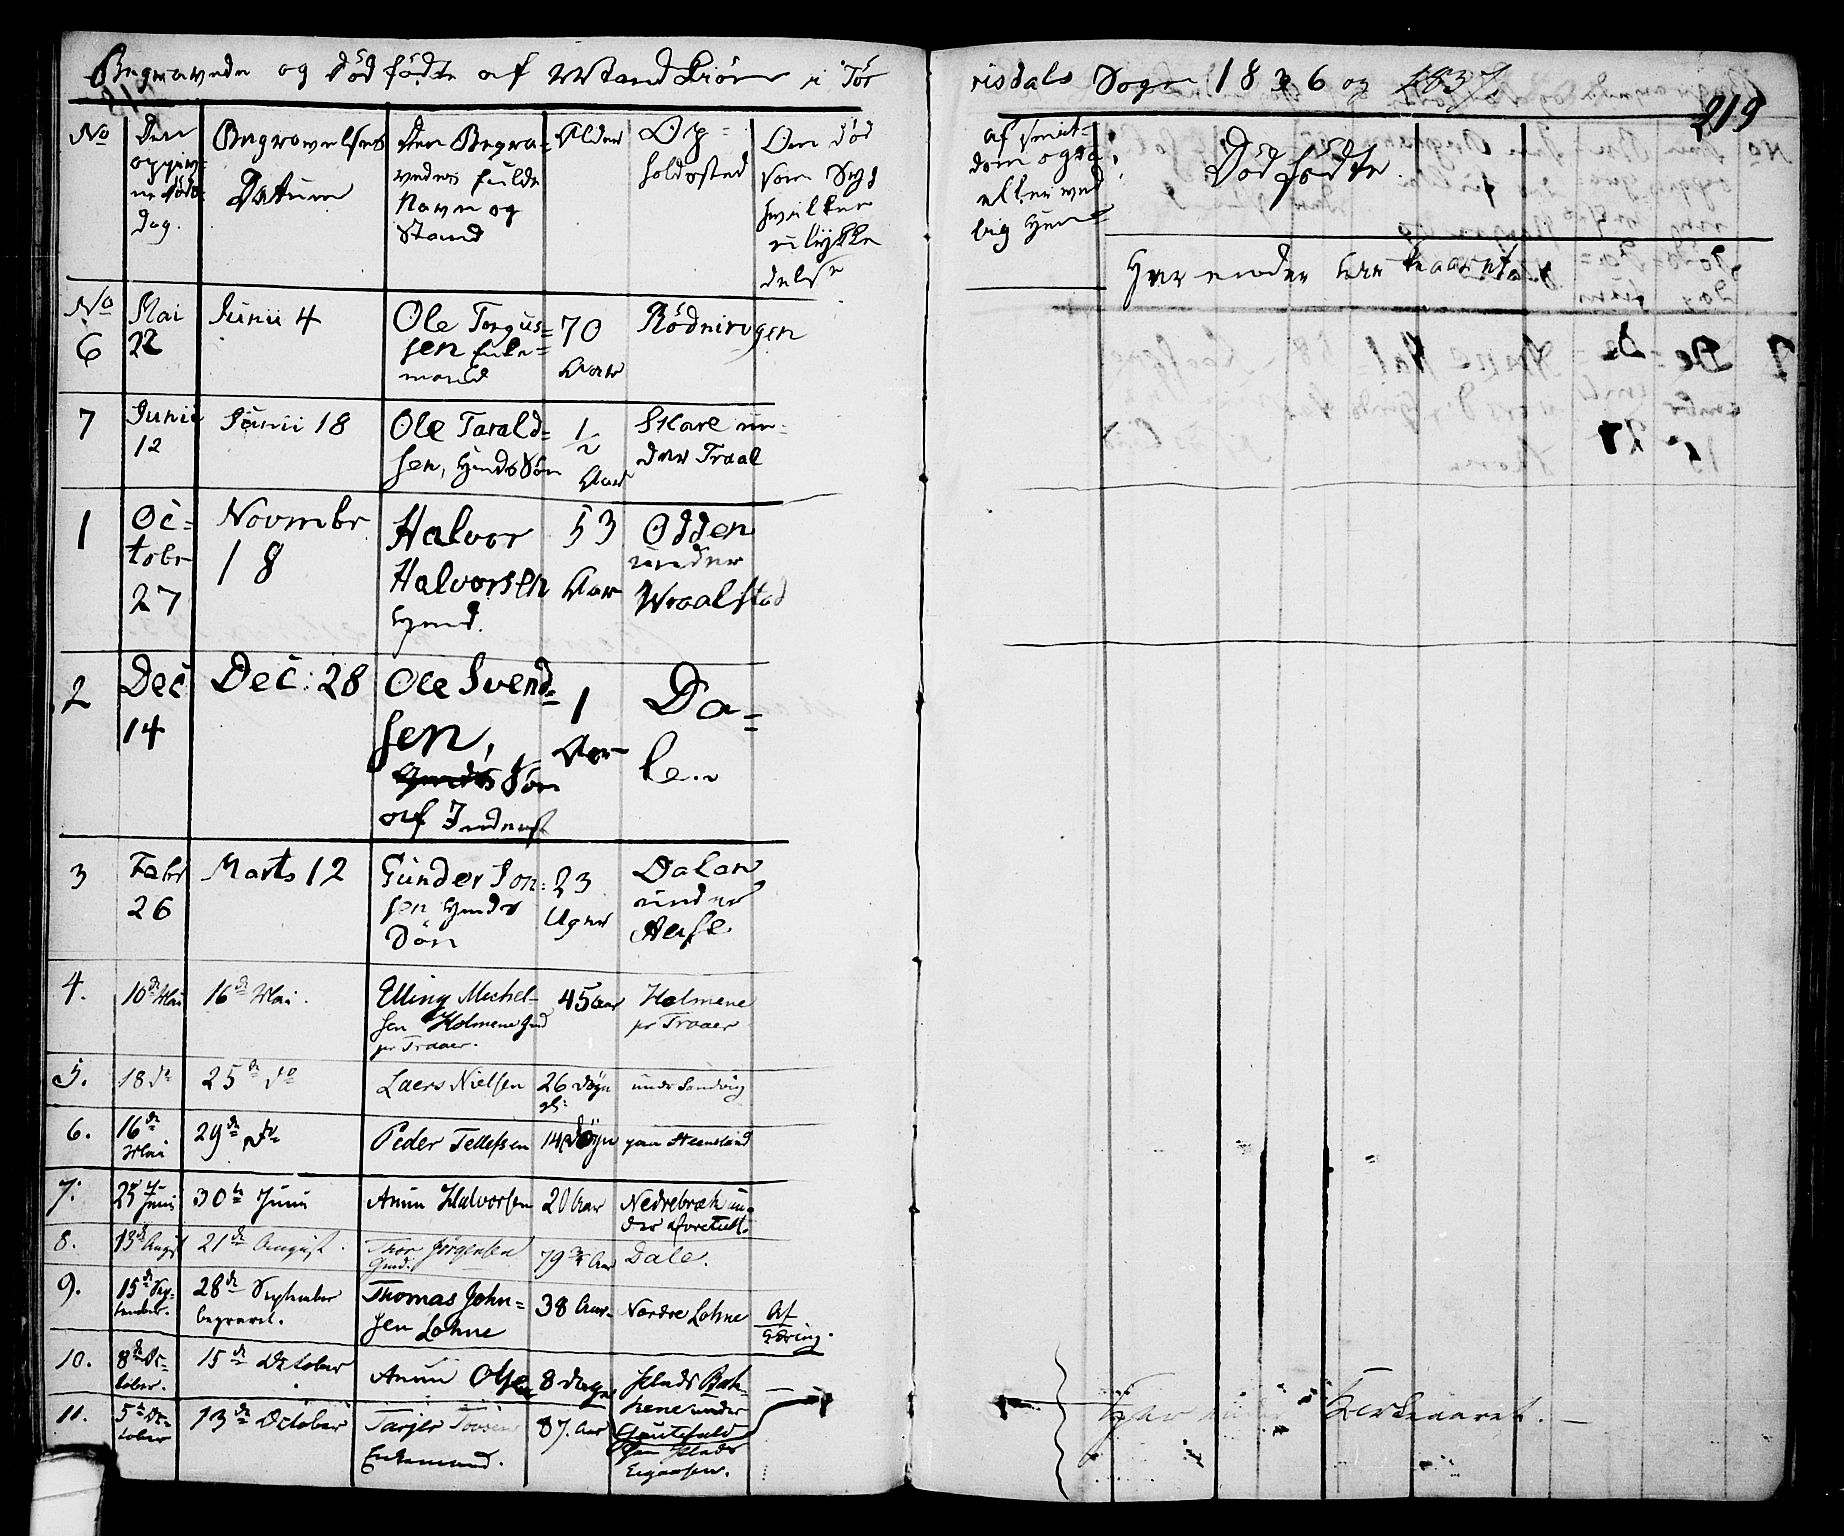 Begravede og Dødfødte af Mandkiøn i Tør
risdals Sogn 1836 og 1837
219
No
Den
opgiv-
ne Døds-
dag.
Begravelses
Datum
Den Begra-
vedes fulde
Navn og
Stand
Alder
Op-
holdssted
Om død
som Syg
hvilken
ulykke
delse
af smit-
Dødfødte.
Her ender kirkeaaret
No
6
Mai
22
Junii 4
Ole Torgus-
sen Enke-
mand
70
Aar
Rødningen
7
Junii
12
Junii 18
Ole Tarald-
sen, Huusds Søn
1/2
Aar
Skare un-
der Traal
1
Oc-
tobr
27
Novmbr
18
Halvor
Halvorsen
Hmd.
53
Aar
Odden
under
Wraalstad
2
Dec
14
Dec: 28
Ole Svend-
sen,
Søn
af Inderst
1
Aar
Da-
le..
3
Febr
26
Marts 12
Gunder Jon-
sen Hmds
Søn
23
Uger
Dalen
under
4.
10de Mai
16de Mai.
Elling Michel-
sen Holmene
pr Traaer.
45 Aar
Holmene
pr Traaer
5.
18 do
25de do
Laers Nielsen
26 Døgn
gl:
under Sandvig
6.
16de
Mai
29de do
Peder Tellefsen
14 Døgn
7.
25de
Juni
30te Juni
Anun Halvorsen
20 Aar
Nedrebræk un-
der
8.
13de Augst
21de August.
Thor Jørgensen
Gmd.
79 Aar
Dale.
9.
15de Sep-
tember.
28de September
begravet.
Thomas John-
sen Lohne
38 Aar
Nordre Lohne
Af
Tæring.
10.
8de Oc-
tober.
15de October
Anun Olsen
8 Dage
Plads Bak-
kene under
11.
5te Oc-
tober
13de October
Tarjer
Enkemand.
87. Aar
Gautefald
Her ender Kirkeaaret.